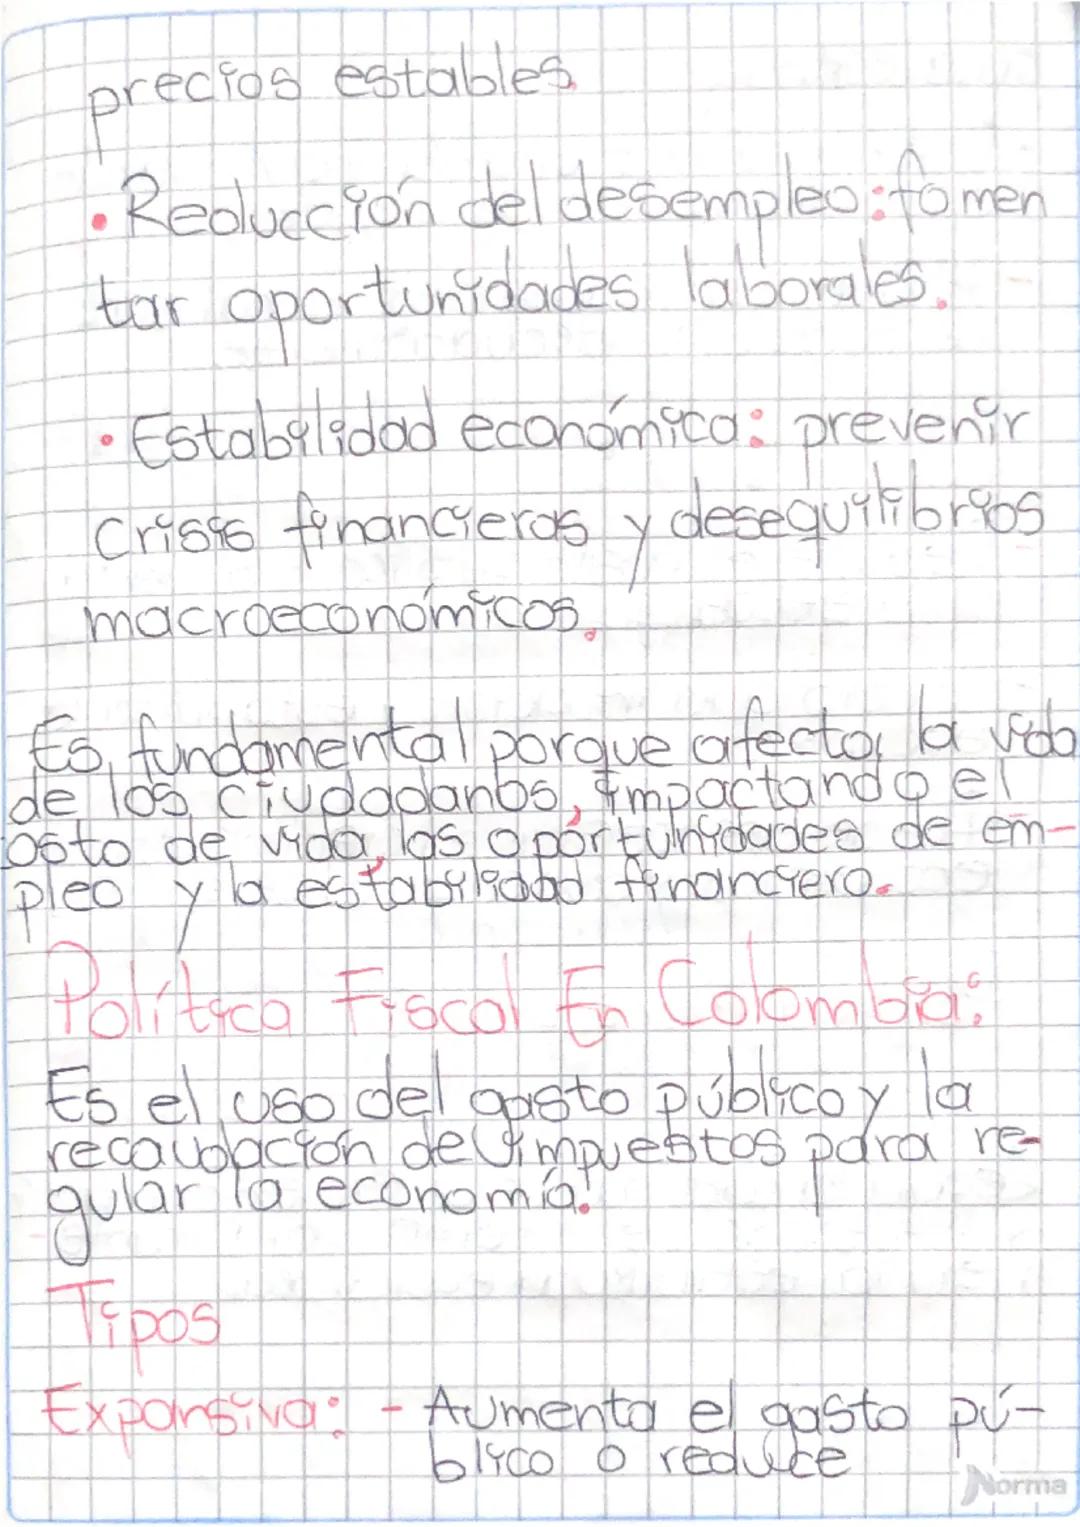 precios estables.
• Reducción del desempleo: fomen
tar oportunidades laborales.
• Estabilidad económica: prevenir
crisis financieras y desequilibrios
macroeconómicos.
Es fundamental porque afecta la vida
de los ciudadanos, impactando el
costo de vida, las oportunidades de em-
pleo y la estabilidad financiero.
Política Fiscal En Colombia:
Es el uso del gasto público y la
recaudación de impuestos para re-
gular la economía.
Tipos
Expansiva: - Aumenta el gasto pú-
blico o reduce
Norma